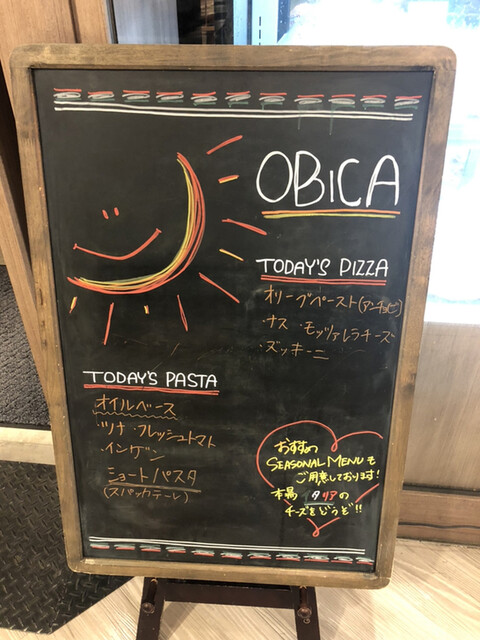 OBiCA
TODAY'S PIZZA
オリーブペースト(アンチョビ)
・ナス ・モッツァレラチーズ
・ズッキーニ
TODAY'S PASTA
オイルベース
・ツナ ・フレッシュトマト
・インゲン
ショートパスタ
(スパッカテーレ)
おすすめ
SEASONAL MENUも
ご用意しております!
本場 イタリアの
チーズをどうぞ!!